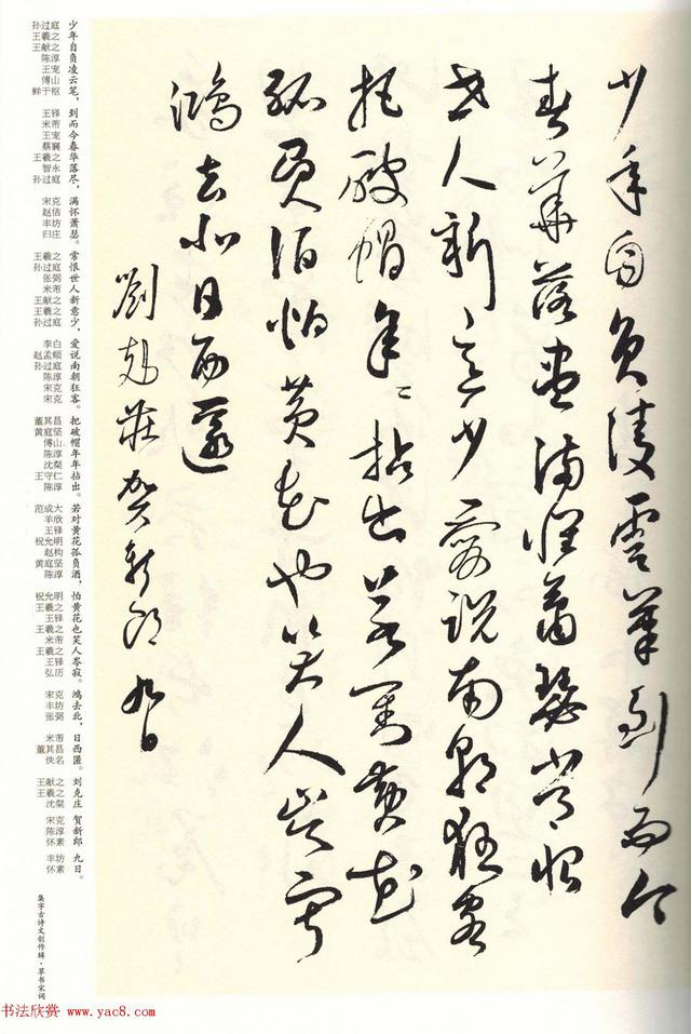 少年自負凌雲筆到而今
春華落盡滿懷蕭瑟常恨
世人新意少愛說南朝狂客
把破帽年々拈出若對黃花
孤負酒怕黃花也笑人岑寂
鴻去北日西匿
劉克莊賀新郎 九日
少年自负凌云笔，到而今春华落尽，满怀萧瑟。常恨世人新意少，爱说南朝狂客。把破帽年年拈出。若对黄花孤负酒，怕黄花也笑人岑寂。鸿去北，日西匿。刘克庄 贺新郎 九日。
孙过庭
王羲之
王献之
陈淳
王宠
傅山
鲜于枢
王铎
米芾
王宠
蔡襄
王羲之
智永
孙过庭
宋克
赵佶
丰坊
归庄
王羲之
孙过庭
张弼
米芾
王献之
王羲之
孙过庭
李白
赵孟頫
孙过庭
陈淳
宋克
宋克
董其昌
黄庭坚
傅山
陈淳
沈粲
王守仁
陈淳
范成大
羊欣
王铎
祝允明
赵构
黄庭坚
陈淳
祝允明
王羲之
王铎
王羲之
米芾
王羲之
王铎
弘历
宋克
丰坊
张弼
米芾
董其昌
佚名
王献之
王羲之
沈粲
宋克
陈淳
怀素
丰坊
怀素
集字古诗文创作辑·草书宋词
书法欣赏 www.yac8.com